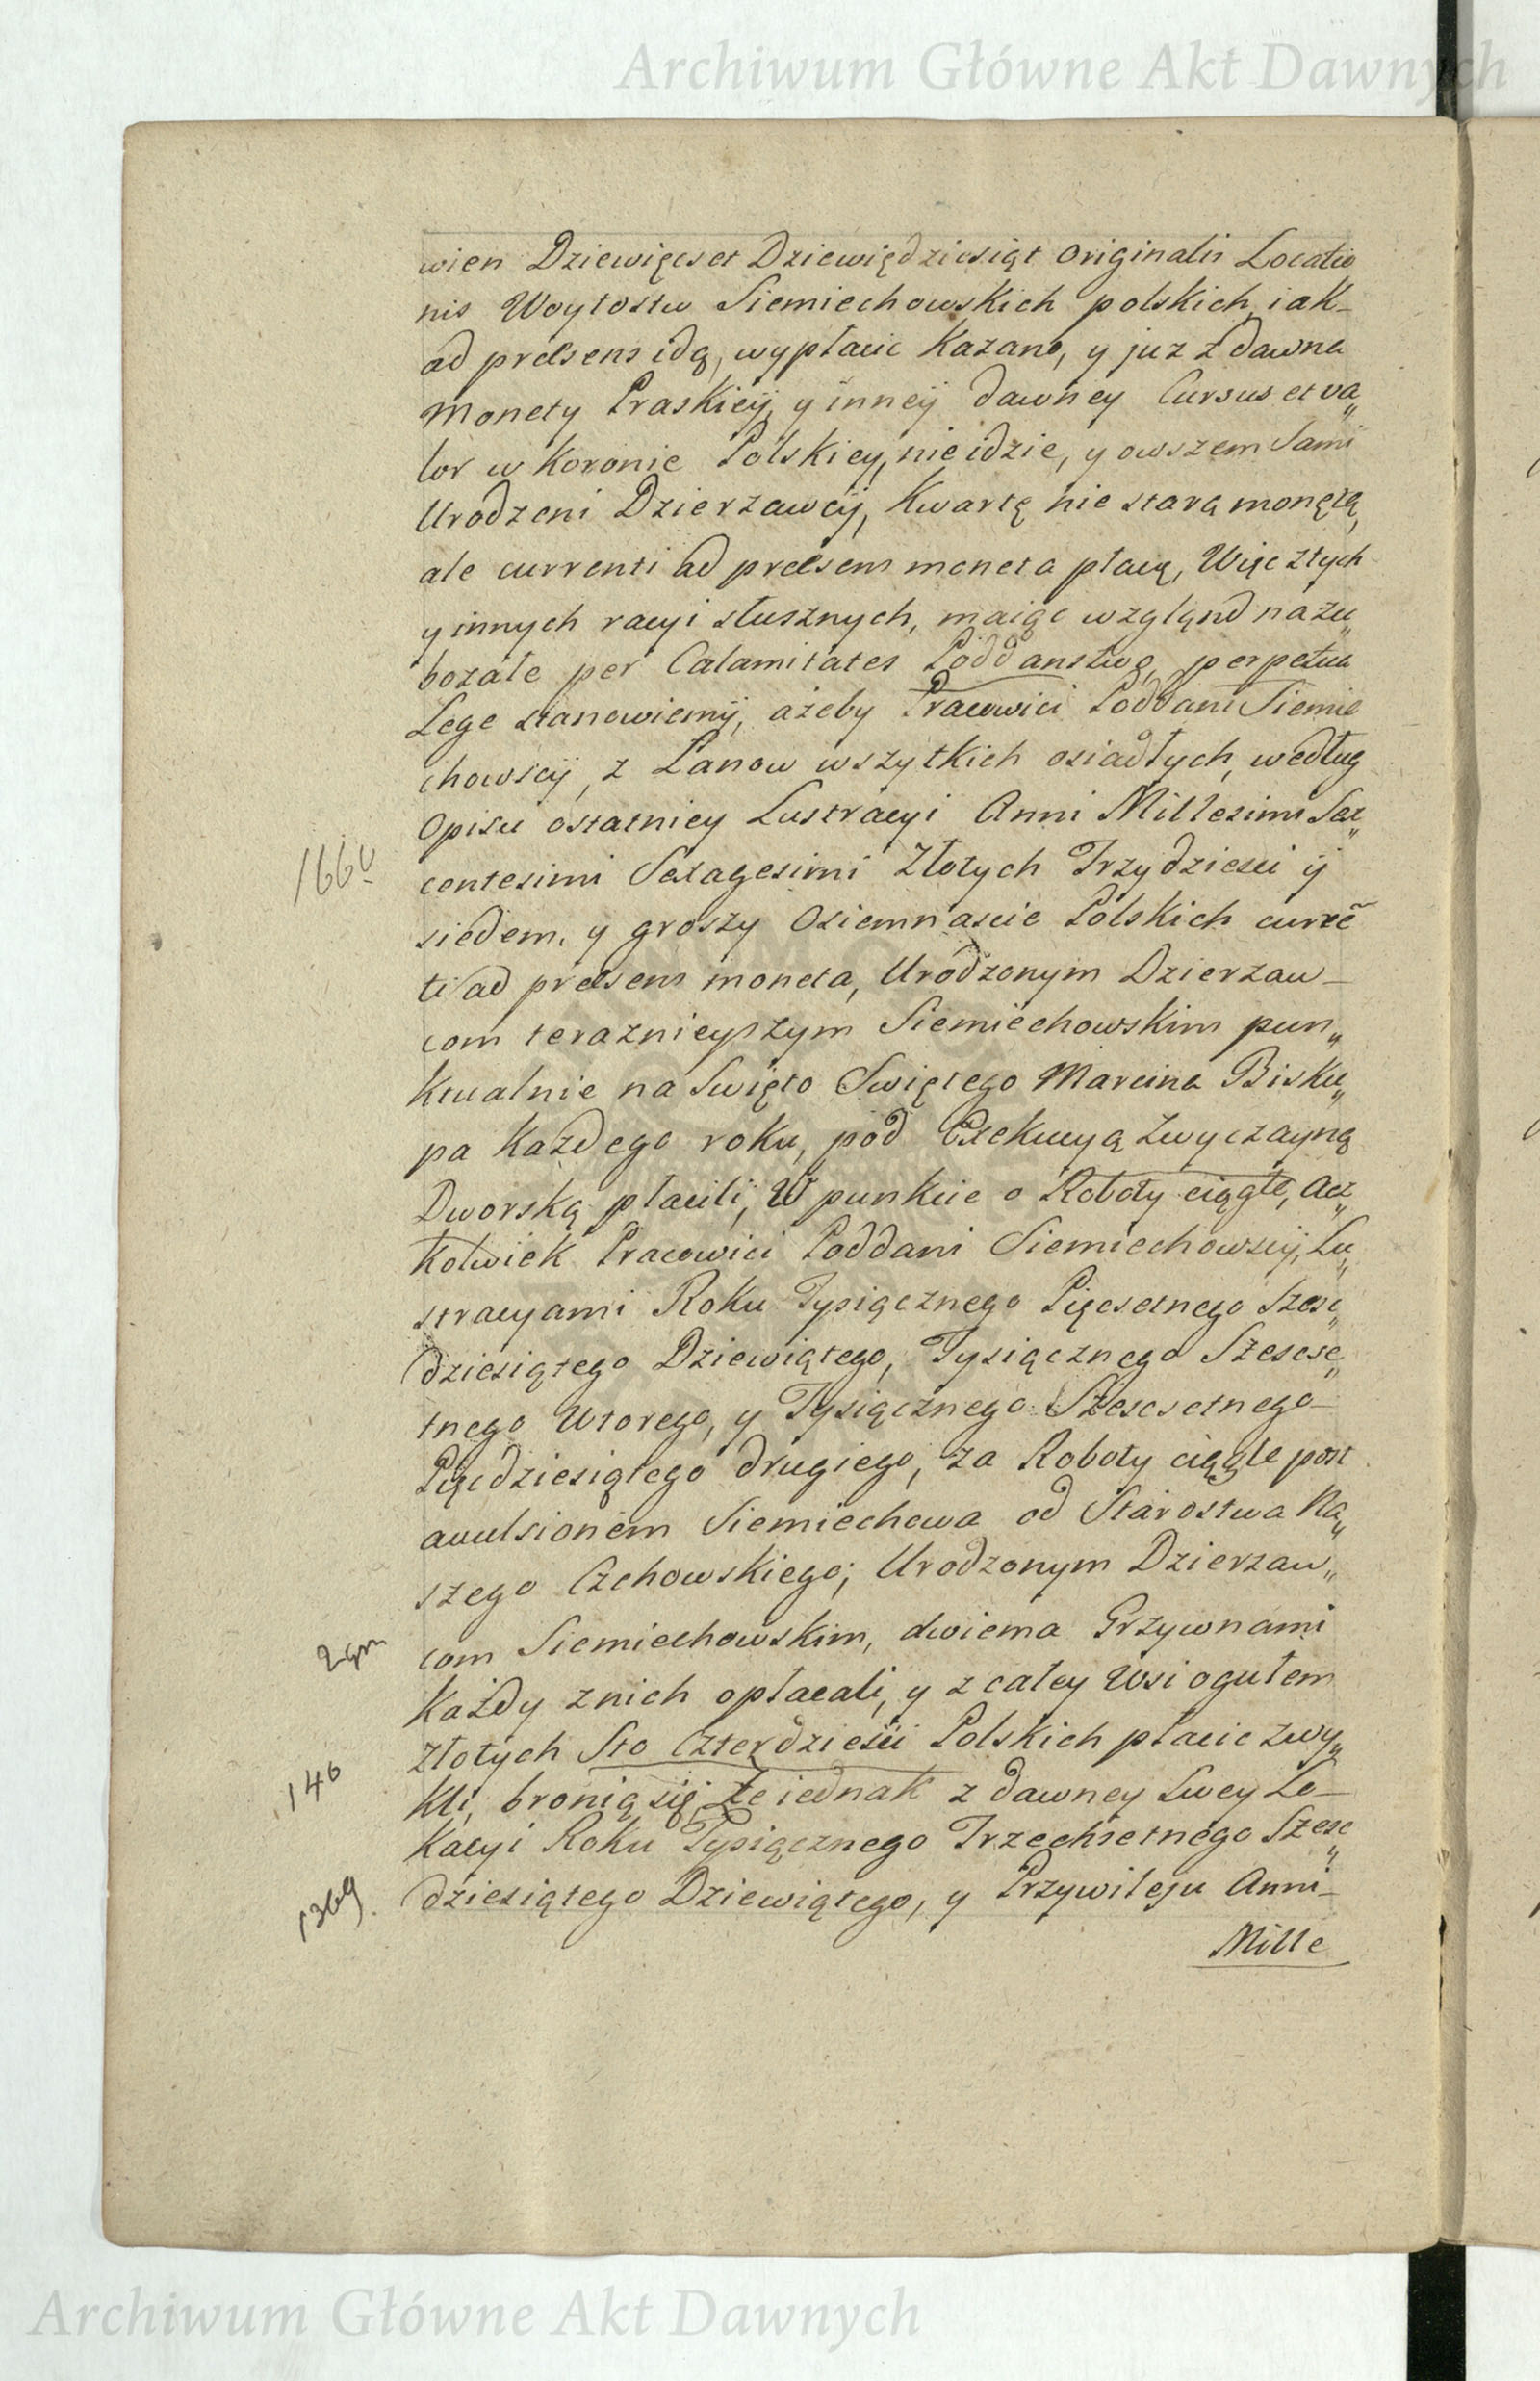 Archiwum Główne Akt Dawnych
wien Dziewięcset Dziewiędziesiąt Originalis Locatio
nis Woytostw Siemiechowskich polskich, iak-
ad praesens idą, wypłacic kazano, y juz z dawna
Monety Praskieÿ, y inneÿ dawney Cursus et va„
lor w Koronie Polskiey, nie idzie, y owszem Sami
Urodzeni Dzierzawcÿ, Kwartę nie starą monętą,
ale currenti ad praesens moneta płacą, Więc z tych
y innych racyi słusznych, maiąc wzgląnd na zu„
bozałe per Calamitates Poddanstwo, perpetua
Lege stanowiemÿ, ażeby Pracowici Poddani Siemie
chowscÿ, z Łanow wszytkich osiadłych, według
Opisu ostatniey Lustracyi Anni Millesimi Sex„
1660
centesimi Sexagesimi Złotych Trzydziesci ÿ
siedem, y groszy Osiemnascie Polskich currẽ
ti ad praesens moneta, Urodzonym Dzierzaw-
com teraznieyszym Siemiechowskim pun„
ktualnie na Swięto Swiętego Marcina Bisku„
pa Kazdego roku, pod Exekucyą zwyczayną
Dworską płacili, W punkcie o Roboty ciągłe, acz„
kolwiek Pracowici Poddani Siemiechowscÿ, Lu„
stracyami Roku Tysiącznego Pięcsetnego Szesc„
dziesiątego Dziewiątego, Tysiącznego Szescse„
tnego Wtorego, y Tysiącznego Szescsetnego-
Pięcdziesiątego drugiego, za Roboty ciągłe post
avulsionem Siemiechowa od Starostwa Na„
szego Czchowskiego; Urodzonym Dzierzaw„
2 grn
com Siemiechowskim, dwiema Grzywnami
Każdy z nich opłacali, y z całey Wsi ogułem
Złotych Sto Czterdziesci Polskich płacic zwy„
140
kli, bronią się, że iednak z dawney swey Lo-
kacyi Roku Tysiącznego Trzechsetnego Szesc„
1369.
dziesiątego Dziewiątego, y Przywileju Anni-
Mille
Archiwum Główne Akt Dawnych